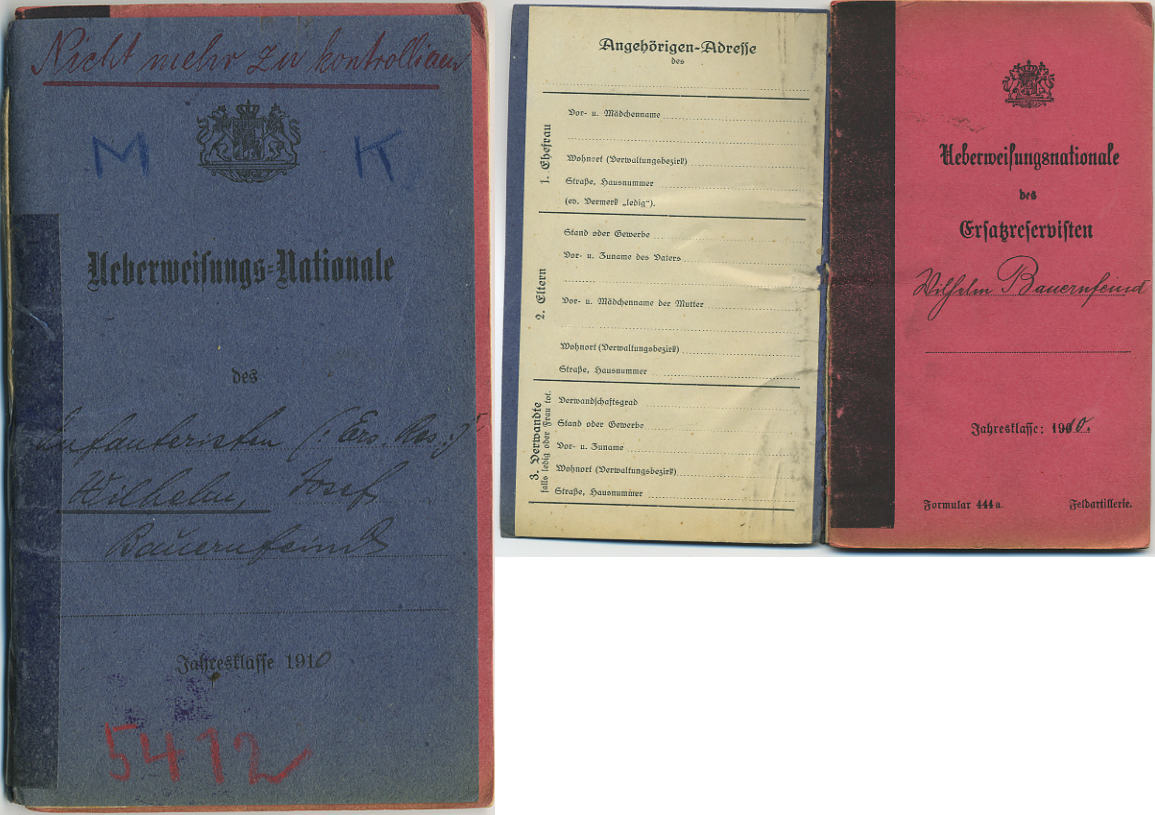 Nicht mehr zu kontrollieren
M K
Ueberweisungs-Nationale
des
Infanteristen (: Ers. Res. :)
Wilhelm, Josef
Bauernfeind
Jahresklasse 1910
5412
Angehörigen-Adresse
des
1. Ehefrau
Vor- u. Mädchenname
Wohnort (Verwaltungsbezirk)
Straße, Hausnummer
(ev. Vermerk „ledig“).
2. Eltern
Stand oder Gewerbe
Vor- u. Zuname des Vaters
Vor- u. Mädchenname der Mutter
Wohnort (Verwaltungsbezirk)
Straße, Hausnummer
3. Verwandte
falls ledig oder Frau tot.
Verwandschaftsgrad
Stand oder Gewerbe
Vor- u. Zuname
Wohnort (Verwaltungsbezirk)
Straße, Hausnummer
Ueberweisungsnationale
des
Ersatzreservisten
Wilhelm Bauernfeind
Jahresklasse: 1910.
Formular 444a. Feldartillerie.